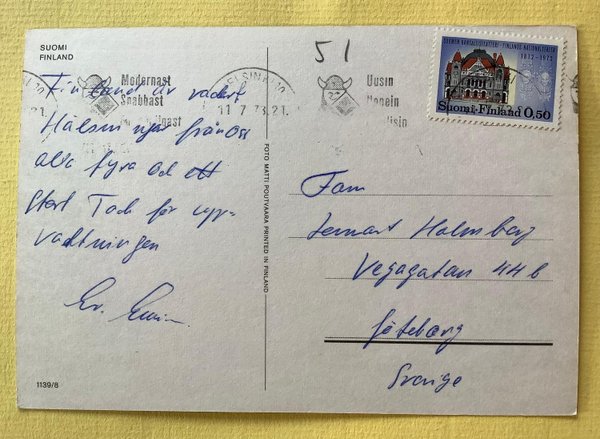 SUOMI
FINLAND
Modernast
Snabbast
HELSINKI 10
11.7.73.21
51
Uusin
Nopein
SUOMEN KANSALLISTEATTERI - FINLANDS NATIONALSCEN
1872-1972
Suomi-Finland 0,50
Finland är vackert
Hälsningar från oss
alla fyra och ett
stort Tack för upp-
vaktningen
Fam
Lennart Holmberg
Vegagatan 44 b
Göteborg
Sverige
FOTO MATTI POUTVAARA PRINTED IN FINLAND
1139/8